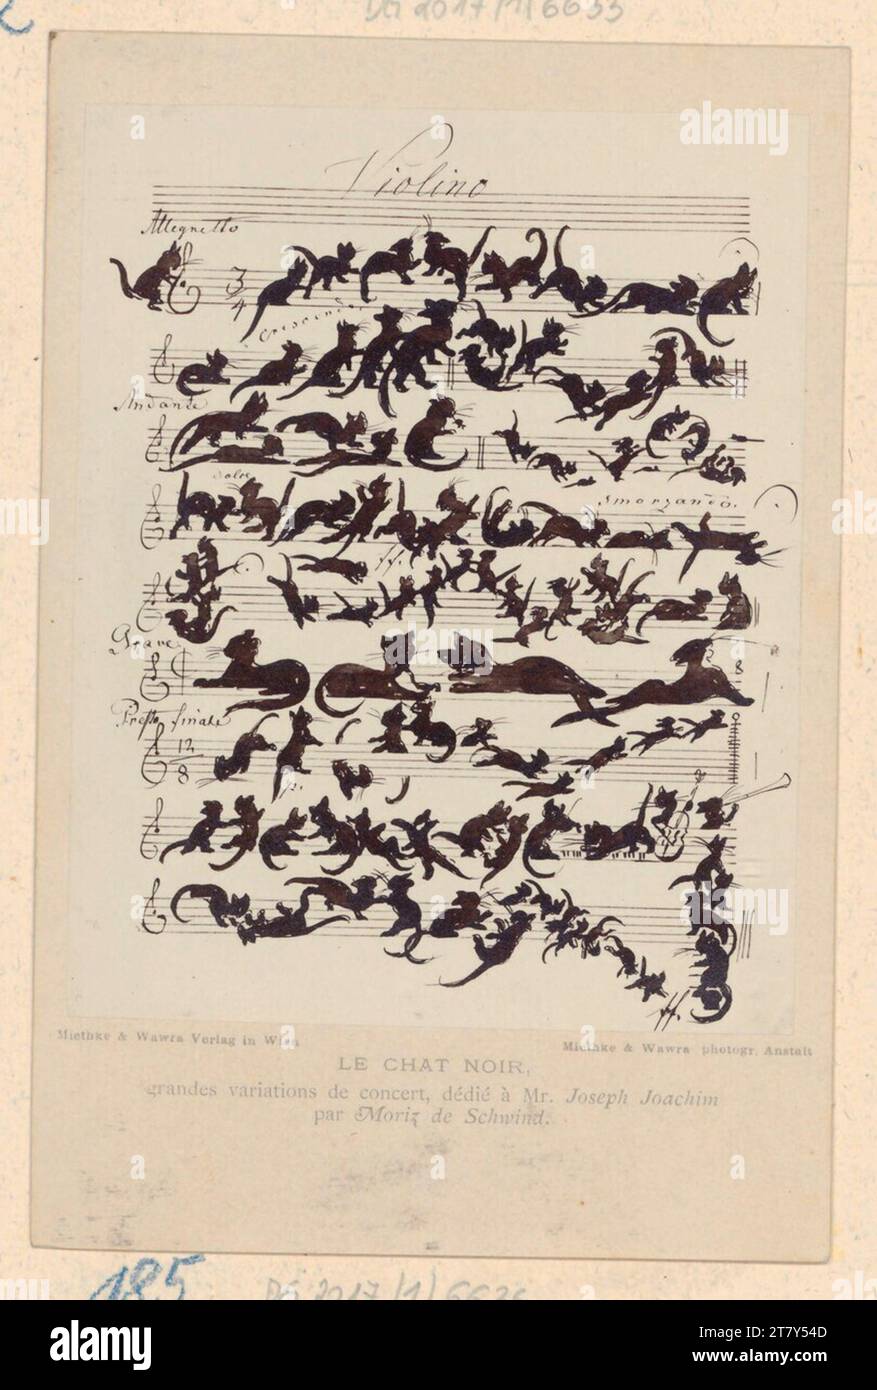 DG2017/1/6633
Violino
Allegretto
3
4
Crescendo
Andante
dolce
smorzando.
ff.
Grave
8
Presto finale
12
8
p.
ff.
Miethke & Wawra Verlag in Wien
Miethke & Wawra photogr. Anstalt
LE CHAT NOIR,
grandes variations de concert, dédié à Mr. Joseph Joachim
par Moriz de Schwind.
185
alamy
Image ID: 2T7Y54D
www.alamy.com